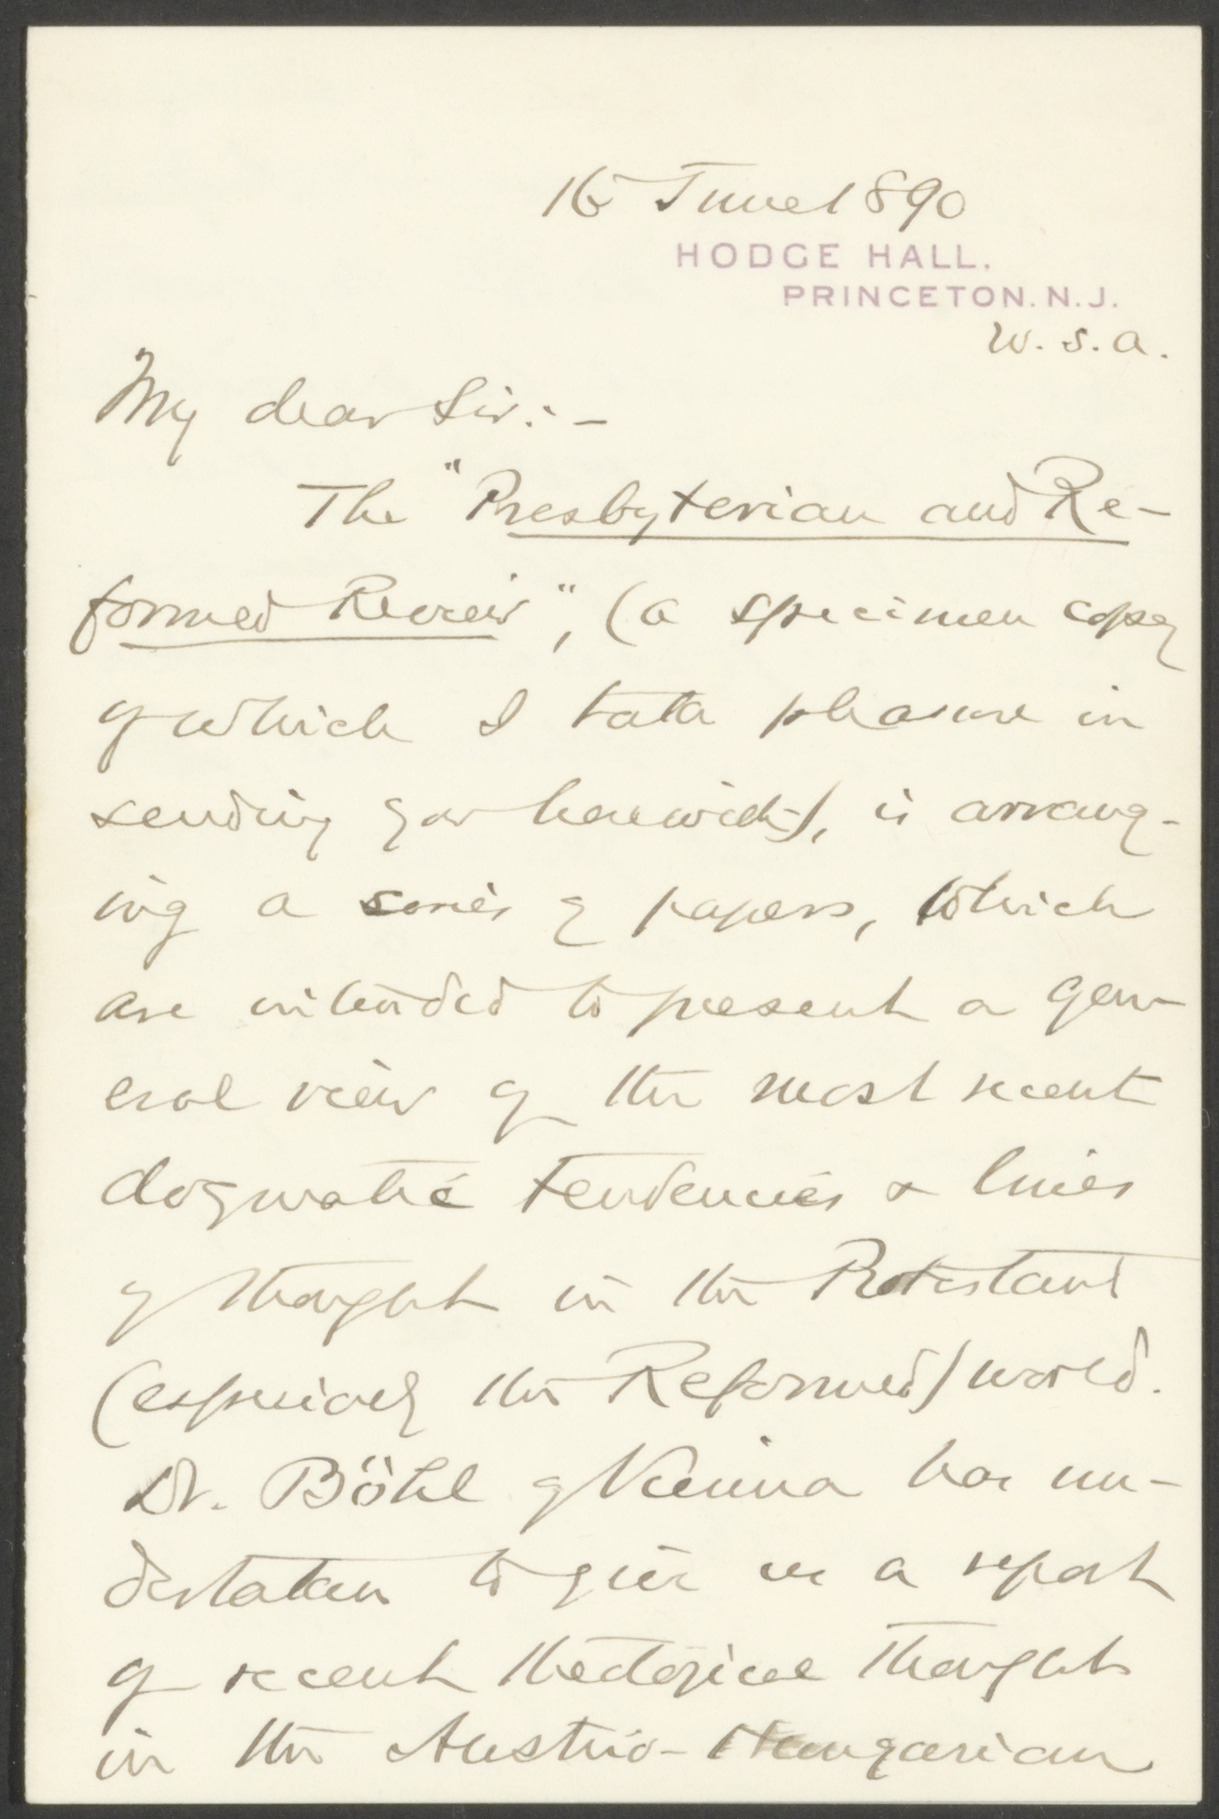 16 June 1890
HODGE HALL.
PRINCETON. N. J.
U. S. A.
My dear Sir:—
The "Presbyterian and Re-
formed Review", (a specimen copy
of which I take pleasure in
sending you herewith), is arrang-
ing a series of papers, which
are intended to present a gen-
eral view of the most recent
dogmatic tendencies & lines
of thought in the Protestant
(especially the Reformed) world.
Dr. Böhl of Vienna has un-
dertaken to give us a report
of recent theological thought
in the Austrio-Hungarian